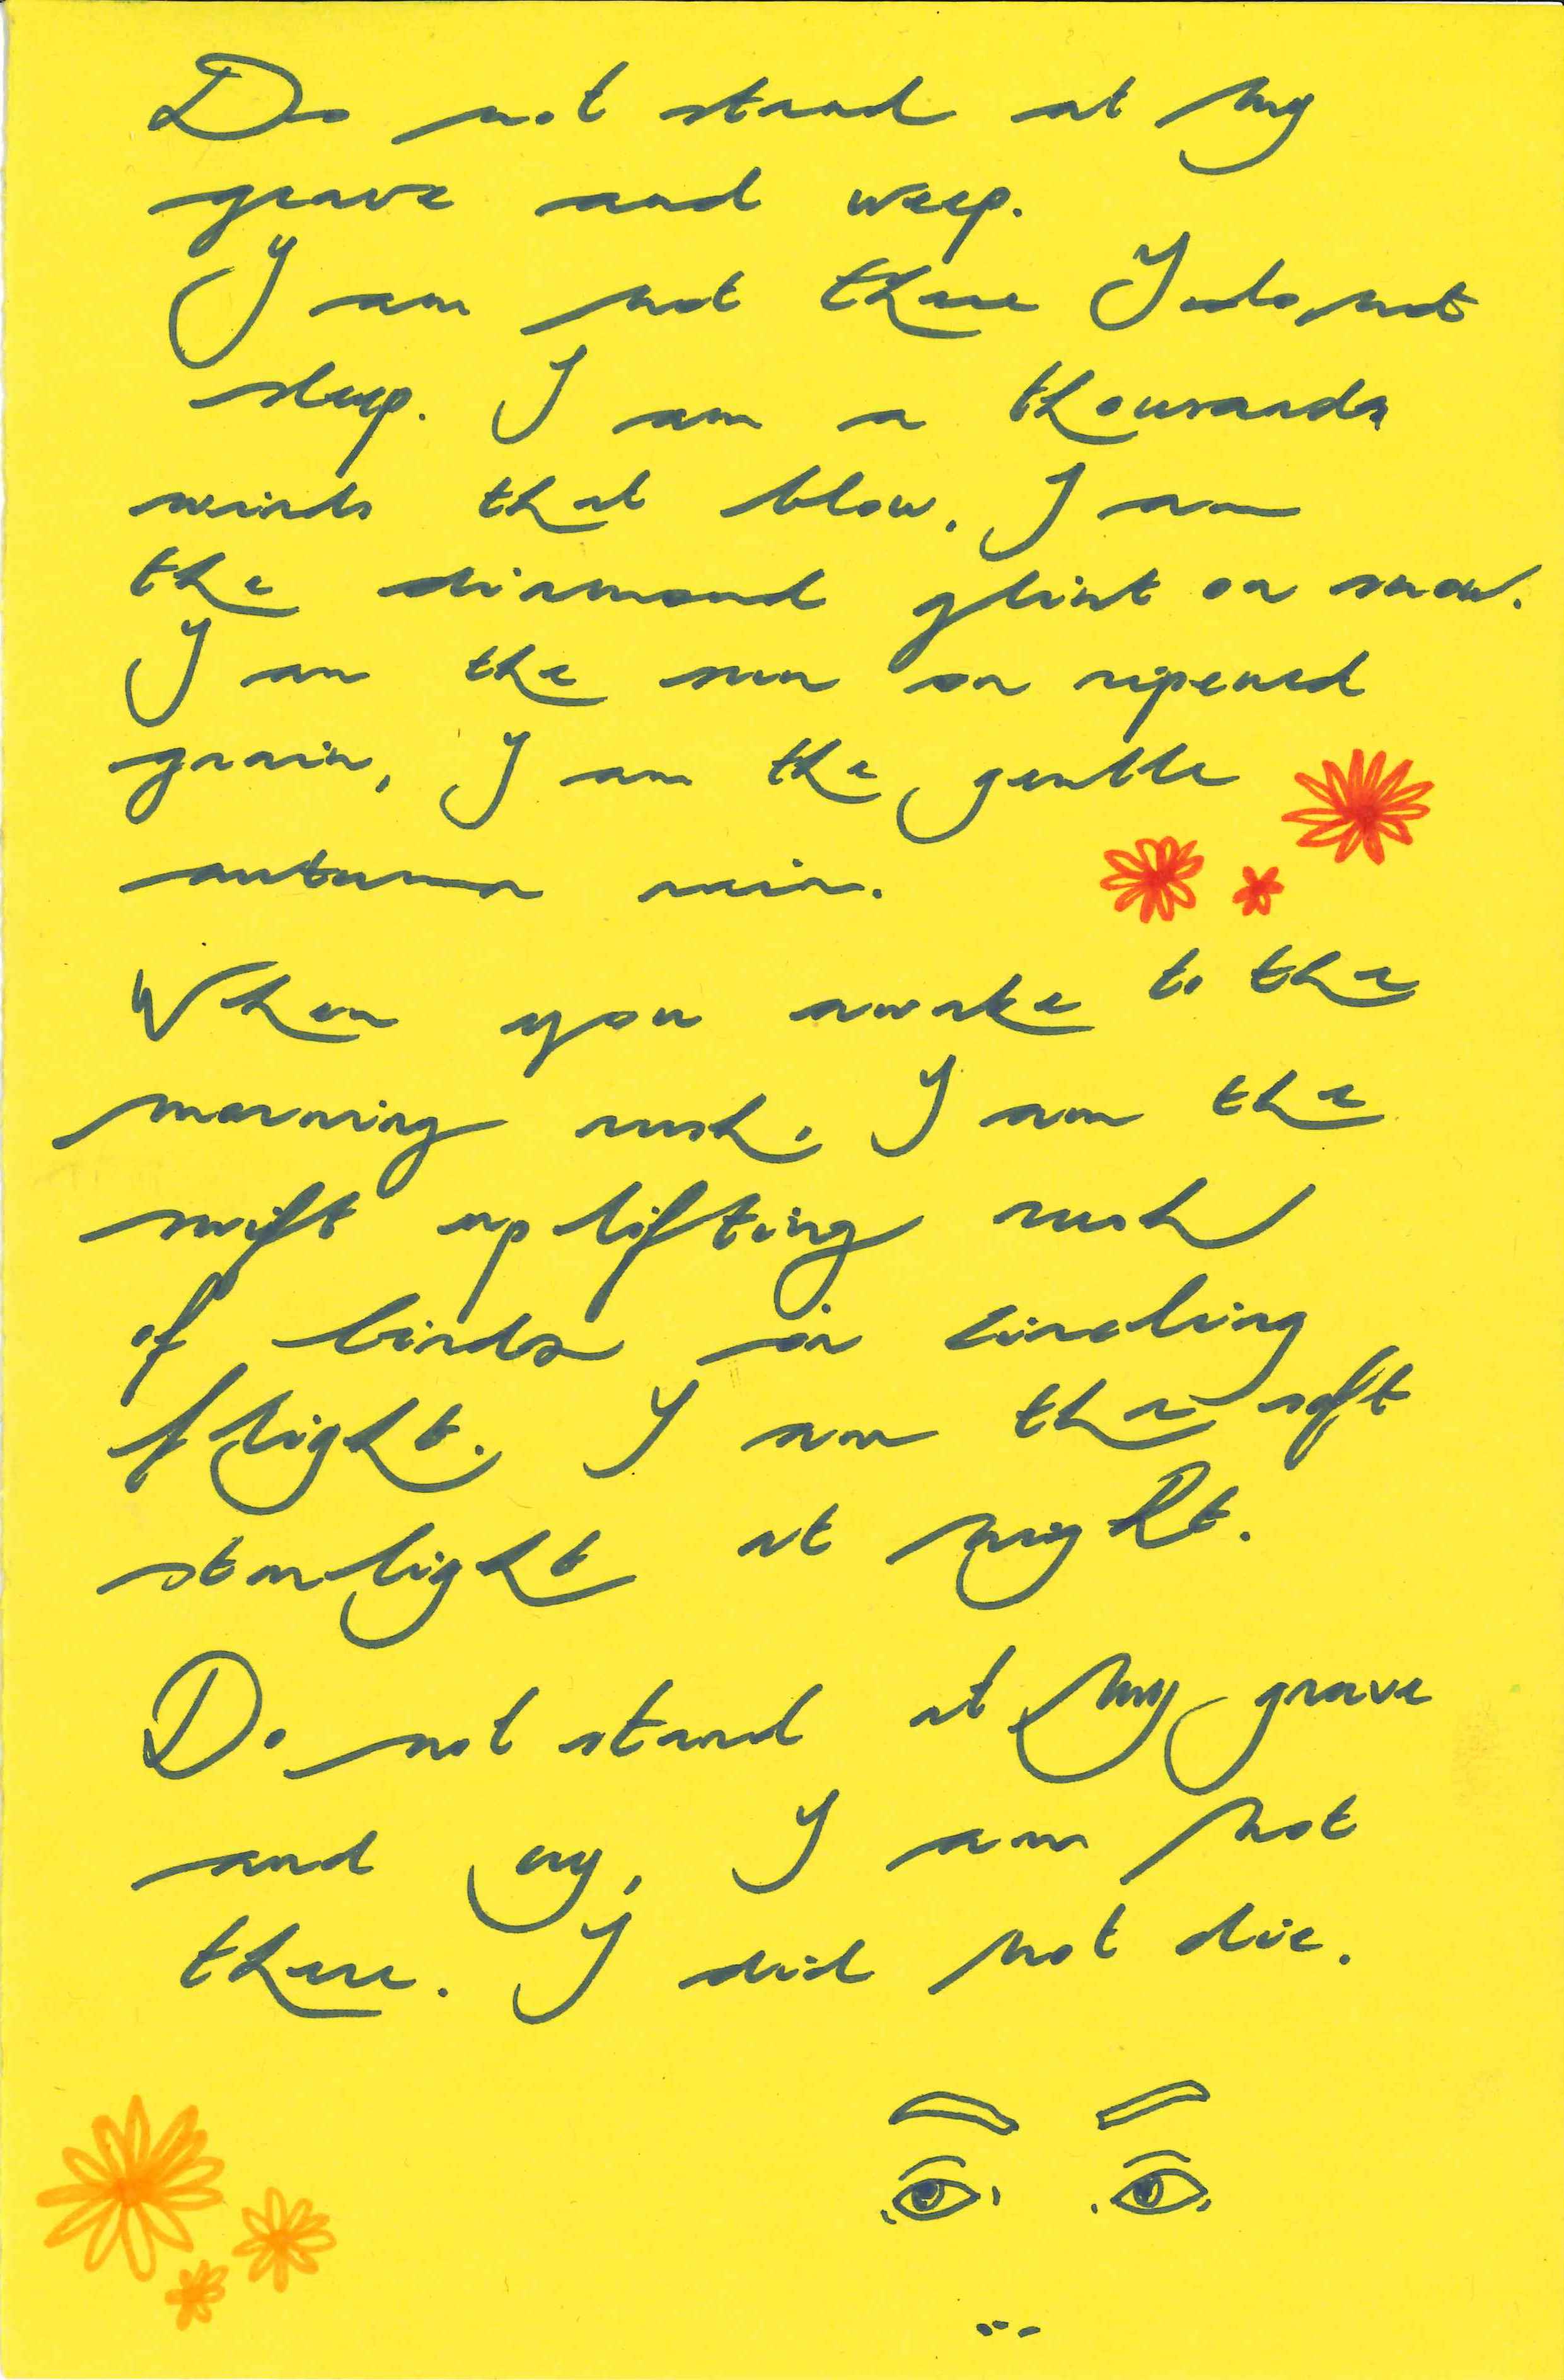 Do not stand at my
grave and weep.
I am not there I do not
sleep. I am a thousands
winds that blow. I am
the diamond glint on snow.
I am the sun on ripened
grain, I am the gentle
autumn rain.
When you awake to the
morning rush, I am the
swift uplifting rush
of birds in circling
flight. I am the soft
starlight at night.
Do not stand at my grave
and cry, I am not
there. I did not die.